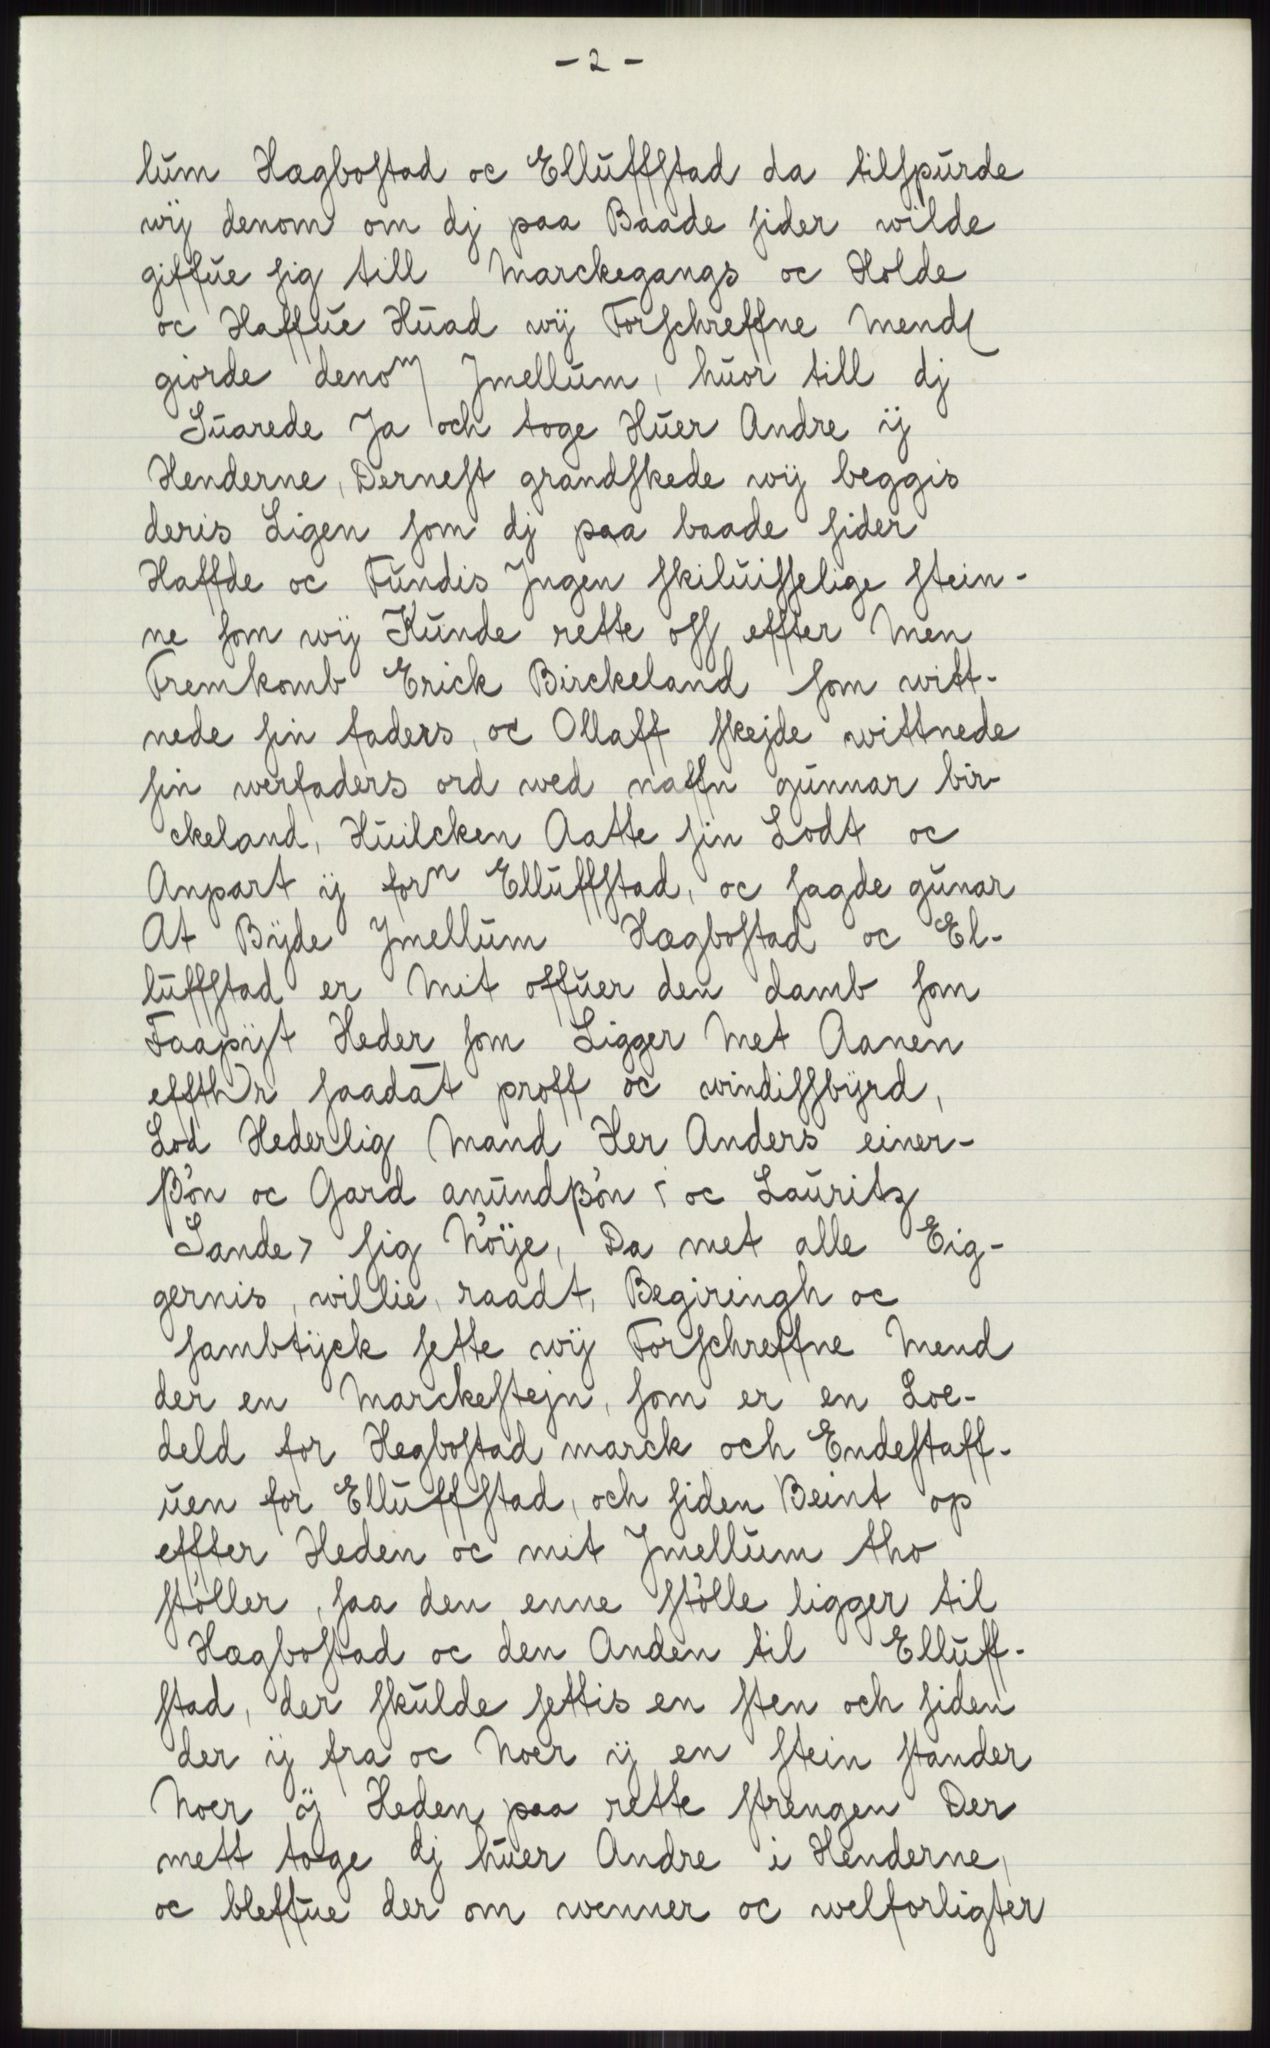 - 2 -
lum Hægbostad oc Elluffstad da tilspurde
wij denom om dj paa Baade sider wilde
giffue sig till Marckegangs oc Holde
oc Haffue Huad wij Forschreffne Mend
giorde denom Jmellum, huor till dj
Suarede Ja och toge Huer Andre ij
Henderne, Dernest grandskede wij beggis
deris Ligen som dj paa baade sider
Haffde oc Fundis Jngen skiluisselige stein-
ne som wij Kunde rette oss effter Men
Fremkomb Erick Birckeland som witt-
nede sin faders, oc Ollaff skejde wittnede
sin werfaders ord wed naffn gunnar bir-
ckeland, Huilcken Aatte sin Lodt oc
Anpart ij forn Elluffstad, oc sagde gunar
At Bÿde Jmellum Hægbostad oc El-
luffstad er Mit offuer den damb som
Faapÿt Heder som Ligger Met Aanen
effthr saadāt proff oc windissbÿrd,
Lod Hederlig Mand Her Anders einer-
ßøn oc Gard anundßøn ; oc Lauritz
Sande> sig Nøÿe, Da met alle Eig-
gernis, willie, raadt, Begiringh oc
sambtÿck sette wij Forschreffne Mend
der en Marckestejn, som er en Loe-
deld for Hegbostad marck och Endestaff-
uen for Elluffstad, och siden Beint op
effter Heden oc mit Jmellum tho
støller, saa den enne stølle ligger til
Hægbostad oc den Anden til Elluff-
stad, der skulde settis en sten och siden
der ij fra oc Noer ij en stein stander
Noer öj Heden paa rette strengen Der
mett toge dj huer Andre i Henderne,
oc bleffue der om wenner oc welforligter